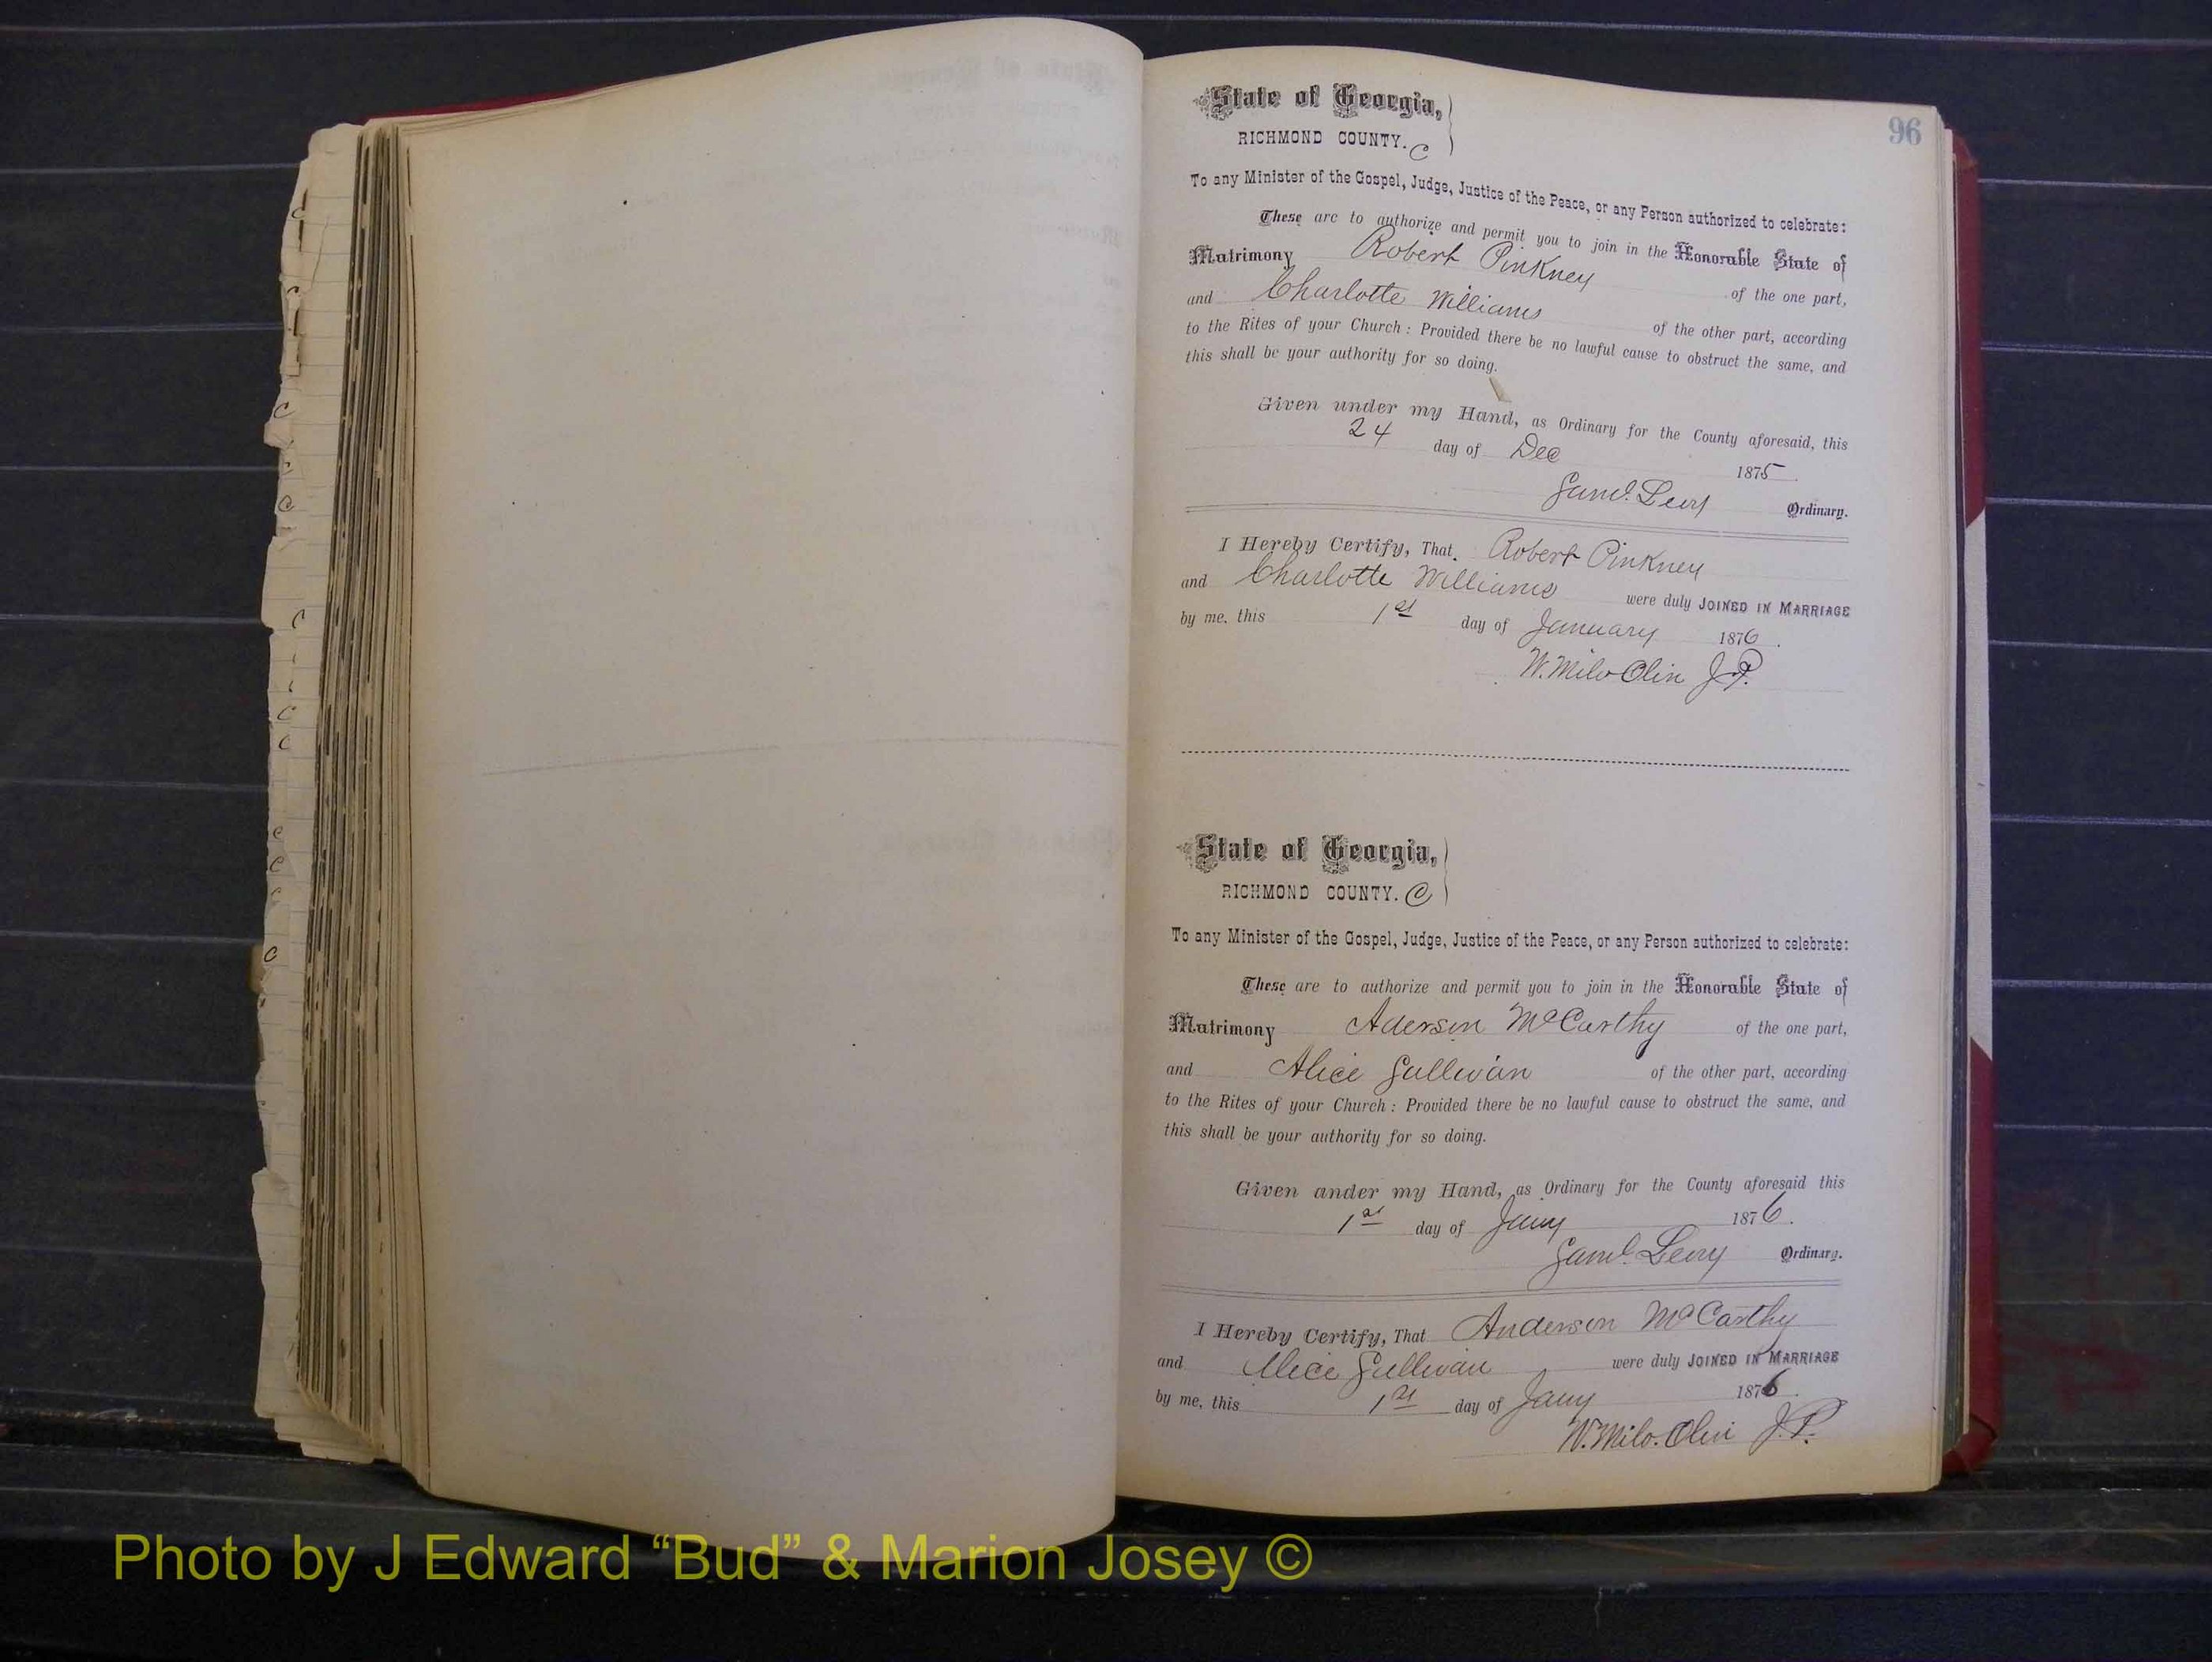 96
State of Georgia,
RICHMOND COUNTY. C
To any Minister of the Gospel, Judge, Justice of the Peace, or any Person authorized to celebrate:
These are to authorize and permit you to join in the Honorable State of
Matrimony Robert Pinkney of the one part,
and Charlotte Williams of the other part, according
to the Rites of your Church: Provided there be no lawful cause to obstruct the same, and
this shall be your authority for so doing.
Given under my Hand, as Ordinary for the County aforesaid, this
24 day of Dec 1875
Saml. Levy Ordinary.
I Hereby Certify, That Robert Pinkney
and Charlotte Williams were duly JOINED IN MARRIAGE
by me, this 1st day of January 1876.
W. Milo Olin J.P.
State of Georgia,
RICHMOND COUNTY. C
To any Minister of the Gospel, Judge, Justice of the Peace, or any Person authorized to celebrate:
These are to authorize and permit you to join in the Honorable State of
Matrimony Aderson McCarthy of the one part,
and Alice Sullivan of the other part, according
to the Rites of your Church: Provided there be no lawful cause to obstruct the same, and
this shall be your authority for so doing.
Given under my Hand, as Ordinary for the County aforesaid this
1st day of Jany 1876.
Saml. Levy Ordinary.
I Hereby Certify, That Anderson McCarthy
and Alice Sullivan were duly JOINED IN MARRIAGE
by me, this 1st day of Jany 1876.
W. Milo. Olin J.P.
Photo by J Edward “Bud” & Marion Josey ©